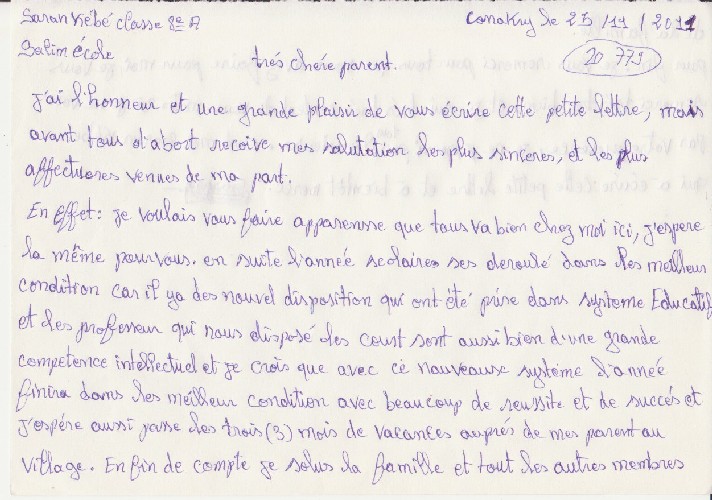 Saran Kébé classe 8e A
Conakry le 25/11/2011
Salim école
20 779
trés chére parent.
J'ai l'honneur et une grande plaisir de vous écrire cette petite lettre, mais
avant tous d'abort recoive mes salutation les plus sinceres, et les plus
affectuoses venues de ma part.
En effet: je voulais vous faire apparensse que tous va bien chez moi ici, j'espere
la même pour vous. en suite l'anneé scolaires ses deroulé dans les meilleur
condition car il ya des nouvel disposition qui ont été prise dans systeme Educatif
et les professeur qui nous disposé les court sont aussi bien d'une grande
competence intellectuel et je crois que avec cé nouveause systéme l'anneé
finira dans les meilleur condition avec beaucoup de reussite et de succés et
J'espére aussi passe les trois (3) mois de vacances auprés de mes parent au
village. En fin de compte je salus la famille et tout les autres membres